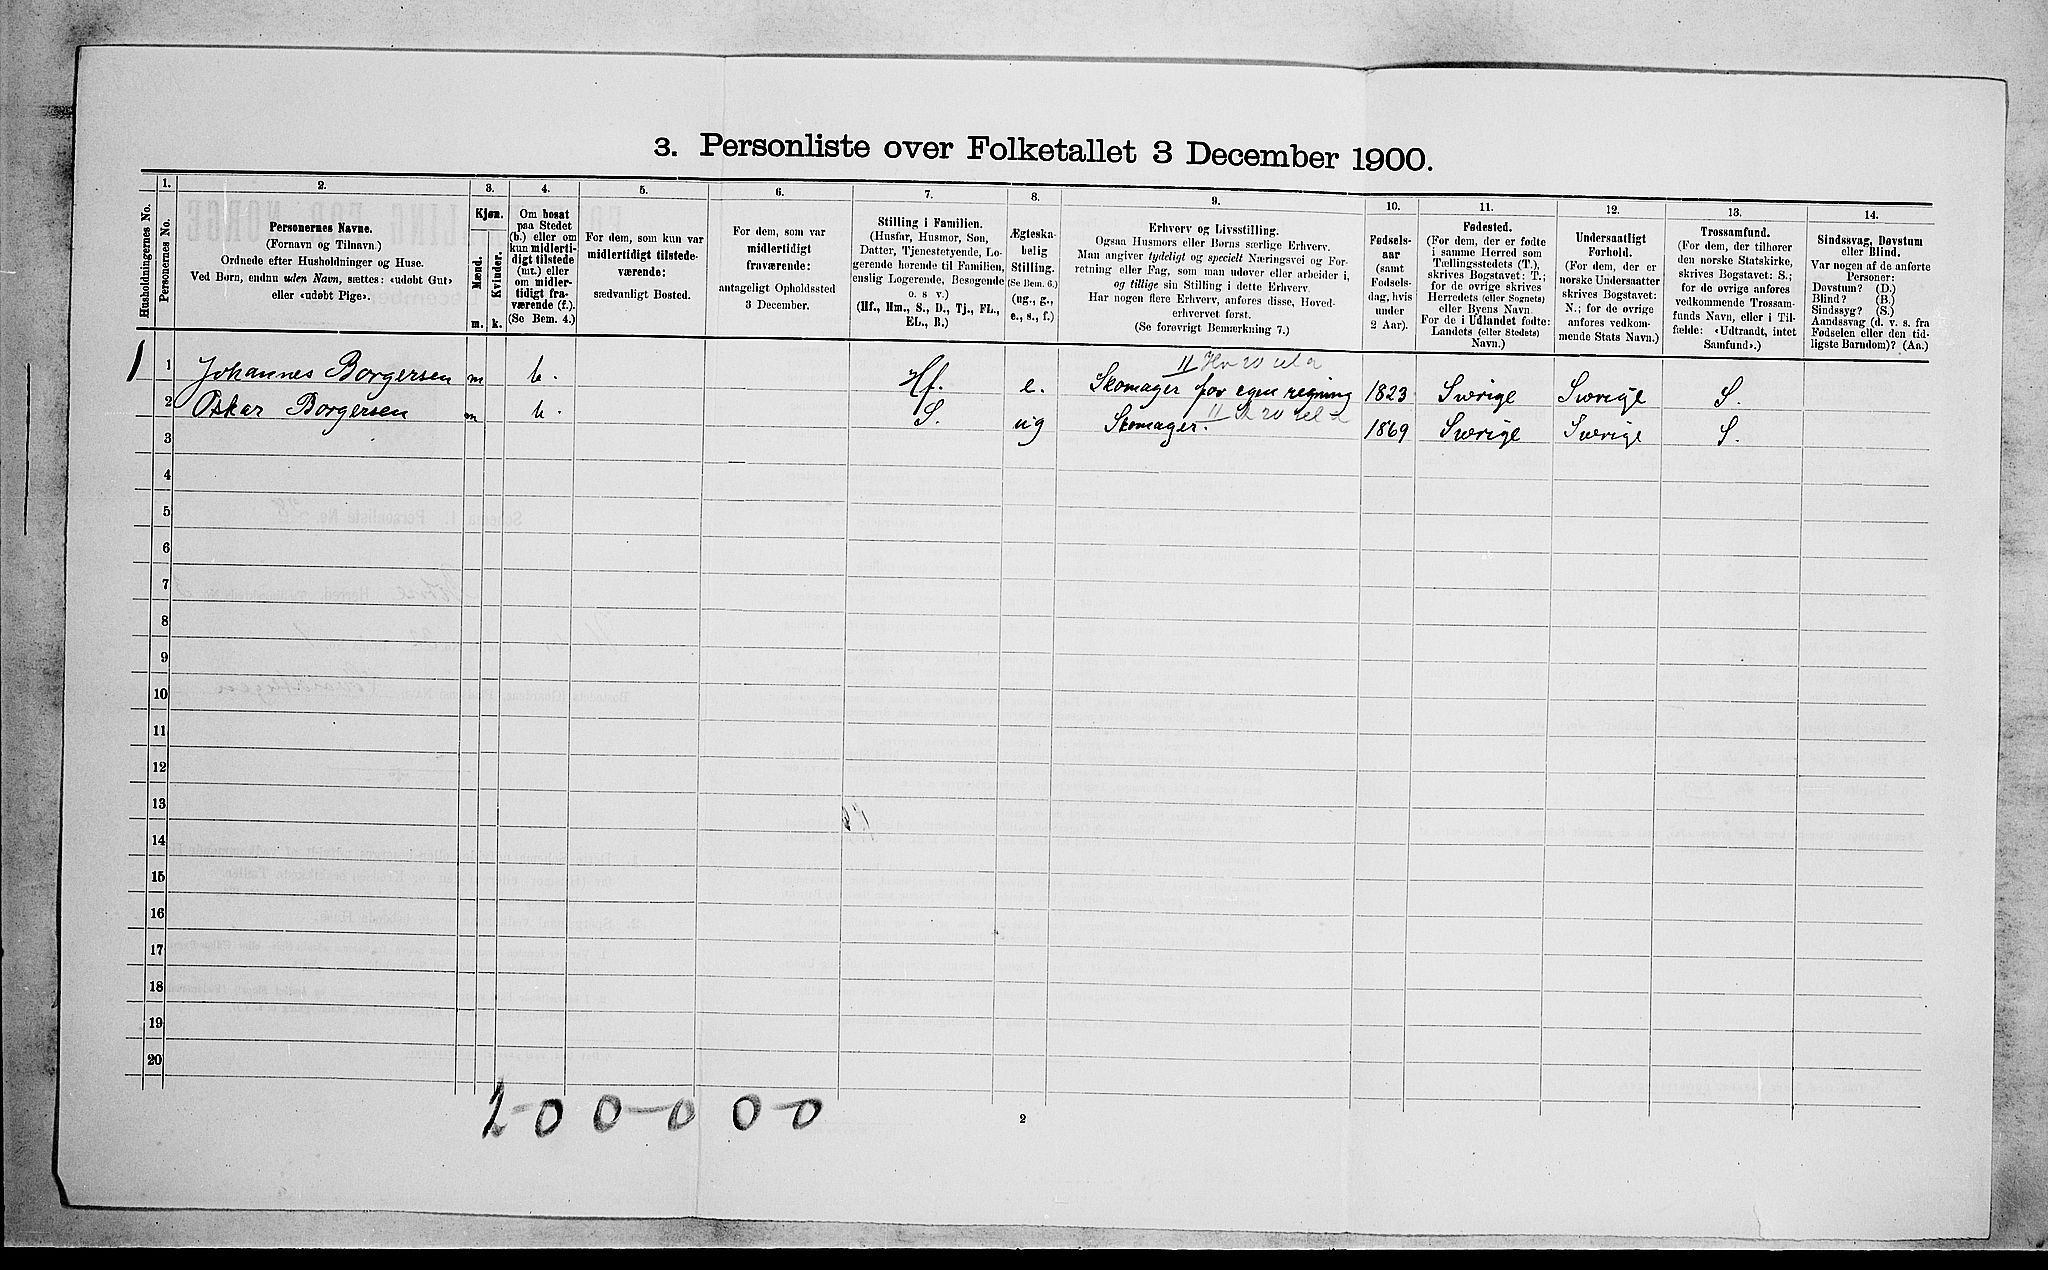 3. Personliste over Folketallet 3 December 1900.
1. 2. 3. 4. 5. 6. 7. 8. 9. 10. 11. 12. 13. 14.
Husholdningernes No.
Personernes No.
Personernes Navne.
(Fornavn og Tilnavn.)
Ordnede efter Husholdninger og Huse.
Ved Børn, endnu uden Navn, sættes: «udøbt Gut»
eller «udøbt Pige».
Kjøn.
Mænd.
Kvinder.
m. k.
Om bosat
paa Stedet
(b.) eller om
kun midlerti-
digt tilstede
(mt.) eller
om midler-
tidigt fra-
værende (f.).
(Se Bem. 4.)
For dem, som kun var
midlertidigt tilstede-
værende:
sædvanligt Bosted.
For dem, som var
midlertidigt
fraværende:
antageligt Opholdssted
3 December.
Stilling i Familien.
(Husfar, Husmor, Søn,
Datter, Tjenestetyende, Lo-
gerende hørende til Familien,
enslig Logerende, Besøgende
o. s. v.)
(Hf., Hm., S., D., Tj., FL.,
EL., B.)
Ægteska-
belig
Stilling.
(Se Bem. 6.)
(ug., g.,
e., s., f.)
Erhverv og Livsstilling.
Ogsaa Husmors eller Børns særlige Erhverv.
Man angiver tydeligt og specielt Næringsvei og For-
retning eller Fag, som man udøver eller arbeider i,
og tillige sin Stilling i dette Erhverv.
Har nogen flere Erhverv, anføres disse, Hoved-
erhvervet først.
(Se forøvrigt Bemærkning 7.)
Fødsels-
aar
(samt
Fødsels-
dag, hvis
under
2 Aar).
Fødested.
(For dem, der er fødte
i samme Herred som
Tællingsstedets (T.),
skrives Bogstavet: T.;
for de øvrige skrives
Herredets (eller Sognets)
eller Byens Navn.
For de i Udlandet fødte:
Landets (eller Stedets)
Navn.)
Undersaatligt
Forhold.
(For dem, der er
norske Undersaatter
skrives Bogstavet:
N.; for de øvrige
anføres vedkom-
mende Stats Navn.)
Trossamfund.
(For dem, der tilhører
den norske Statskirke,
skrives Bogstavet: S.;
for de øvrige anføres
vedkommende Trossam-
funds Navn, eller i Til-
fælde: «Udtraadt, intet
Samfund».)
Sindssvag, Døvstum
eller Blind.
Var nogen af de anførte
Personer:
Døvstum? (D.)
Blind? (B.)
Sindssyg? (S.)
Aandssvag (d. v. s. fra
Fødselen eller den tid-
ligste Barndom)? (Aa.)
1 1 Johannes Borgersen m b. Hf. e. Skomager for egen regning 1823 Sverige Sverige S.
2 Oskar Borgersen m b. S. ug Skomager. 1869 Sverige Sverige S.
3
4
5
6
7
8
9
10
11
12
13
14
15
16
17
18
19
20
2-0 0-0 0-0
2